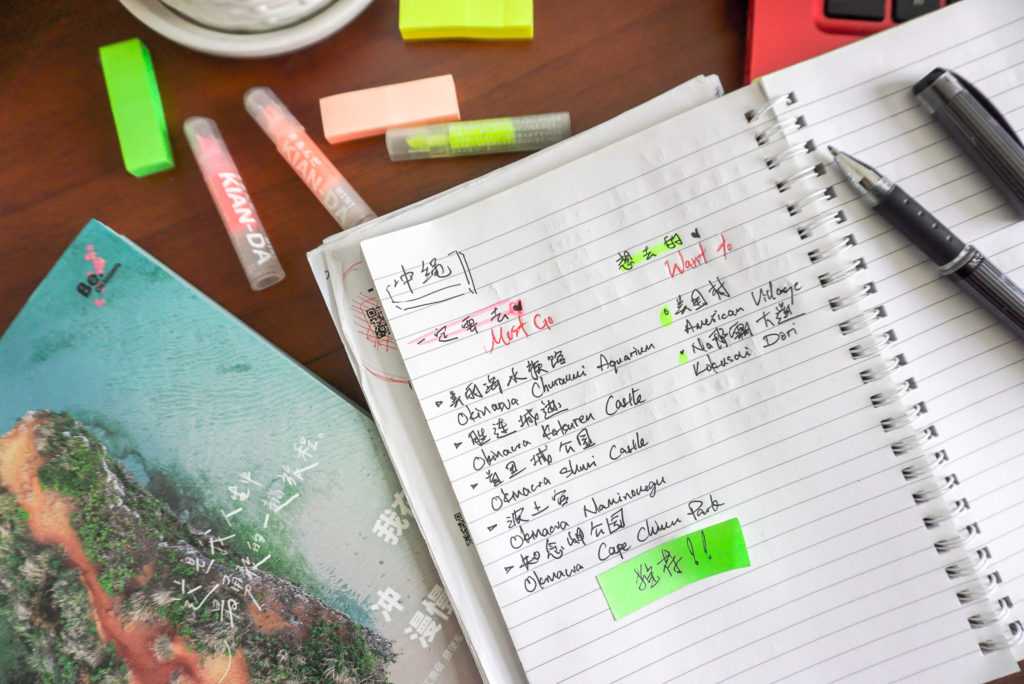 冲绳
一定要去
Must Go
美丽海水族馆
Okinawa Churaumi Aquarium
胜连城迹
Okinawa Katsuren Castle
首里城公园
Okinawa Shuri Castle
波上宫
Okinawa Naminouegu
知念岬公园
Okinawa Cape Chinen Park
推荐!!
想去的
Want to
美国村
American Village
大道
Kokusai Dori
KIAN-DA
KIAN-DA
Be
这是不一样
的一趟旅程。
我在
冲
漫慢